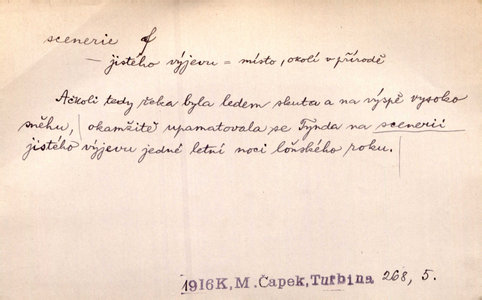 scenerie f
— jistého výjevu = místo, okolí v přírodě
Ačkoli tedy řeka byla ledem skuta a na výspě vysoko
sněhu, | okamžitě upamatovala se Tynda na scenerii
jistého výjevu jedné letní noci loňského roku. |
1916 K, M. Čapek, Turbina 268, 5.